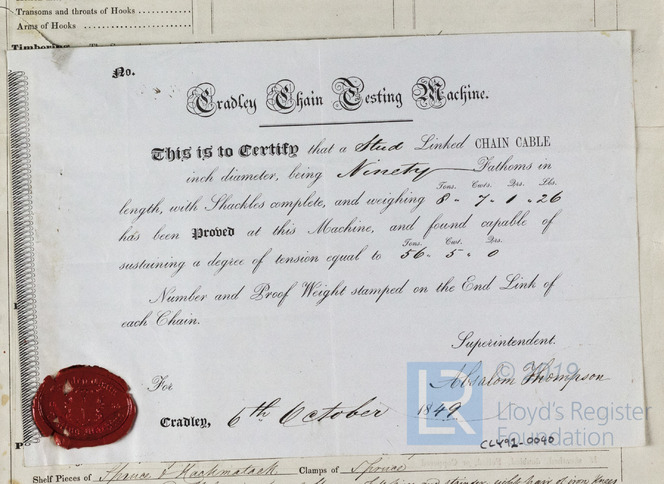 Transoms and throats of Hooks
Arms of Hooks
Timbering
No.
Cradley Chain Testing Machine.
This is to Certify that a Stud Linked CHAIN CABLE
inch diameter, being Ninety Fathoms in
Tons. Cwts. Qrs. Lbs.
length, with Shackles complete, and weighing 8 " 7 " 1 " 26
has been Proved at this Machine, and found capable of
Tons. Cwt. Qrs.
sustaining a degree of tension equal to 56 " 5 " 0
Number and Proof Weight stamped on the End Link of
each Chain.
Superintendent.
For Absalom Thompson
Cradley, 6th October 1849
LR © 2019
Lloyd's Register
Foundation
CL492-0040
Shelf Pieces of Spruce & Hackmatack Clamps of Spruce